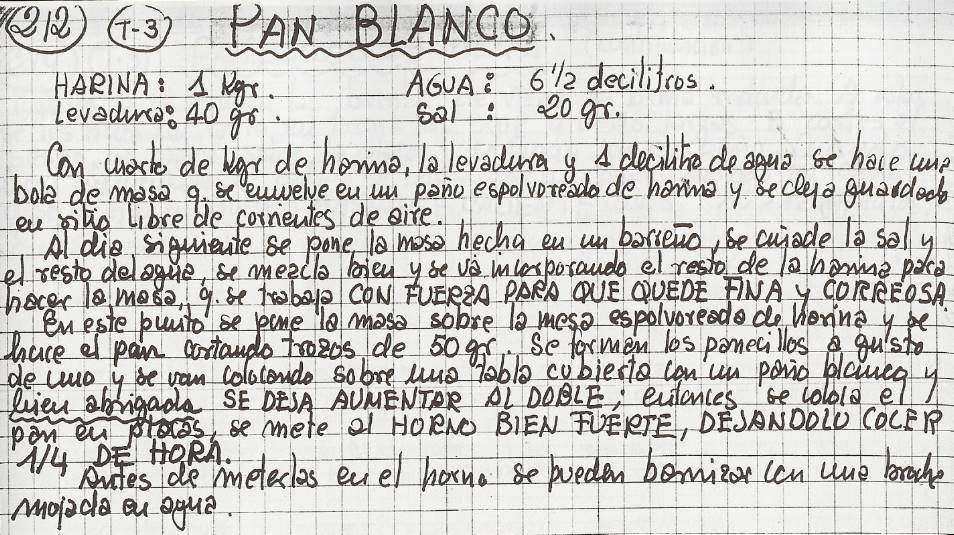 212 T-3 PAN BLANCO.
HARINA: 1 Kgr. AGUA: 6 1/2 decilitros.
Levadura: 40 gr. Sal: 20 gr.
Con cuarto de kgr de harina, la levadura y 1 decilitro de agua se hace una
bola de masa q. se envuelve en un paño espolvoreado de harina y se deja guardada
en sitio libre de corrientes de aire.
Al dia siguiente se pone la masa hecha en un barreño, se añade la sal y
el resto del agua, se mezcla bien y se vá incorporando el resto de la harina para
hacer la masa, q. se trabaja CON FUERZA PARA QUE QUEDE FINA Y CORREOSA
En este punto se pone la masa sobre la mesa espolvoreada de harina y se
hace el pan cortando trozos de 50 gr. Se forman los panecillos a gusto
de uno y se van colocando sobre una tabla cubierta con un paño blanco y
bien abrigada SE DEJA AUMENTAR AL DOBLE; entonces se coloca el
pan en placas, se mete al HORNO BIEN FUERTE, DEJANDOLO COCER
1/4 DE HORA.
Antes de meterlas en el horno se pueden barnizar con una brocha
mojada en agua.